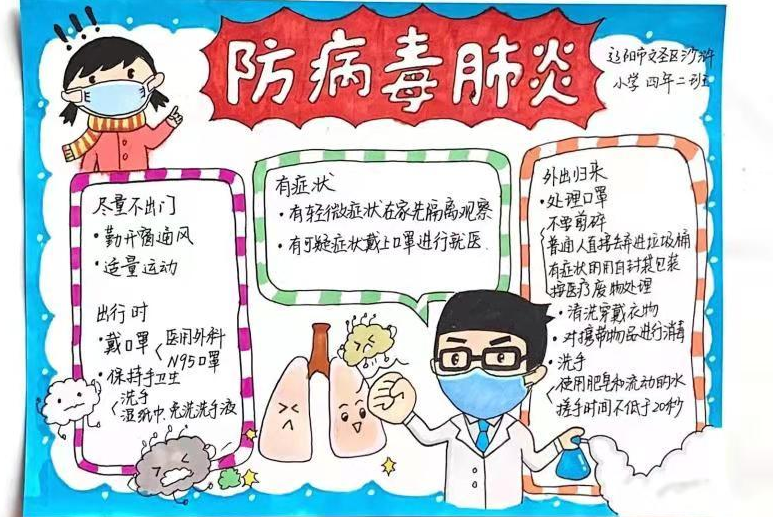 防病毒肺炎
辽阳市文圣区沙浒
小学 四年二班王
尽量不出门
•勤开窗通风
•适量运动
出行时
•戴口罩
医用外科
N95口罩
•保持手卫生
洗手
湿纸巾.免洗洗手液
有症状
•有轻微症状在家先隔离观察
•有可疑症状戴上口罩进行就医.
外出归来
•处理口罩
不要剪碎
普通人直接丢弃进垃圾桶
有症状的用自封袋包装
按医疗废物处理
•清洗穿戴衣物
•对携带物品进行消毒
•洗手
使用肥皂和流动的水
搓手时间不低于20秒